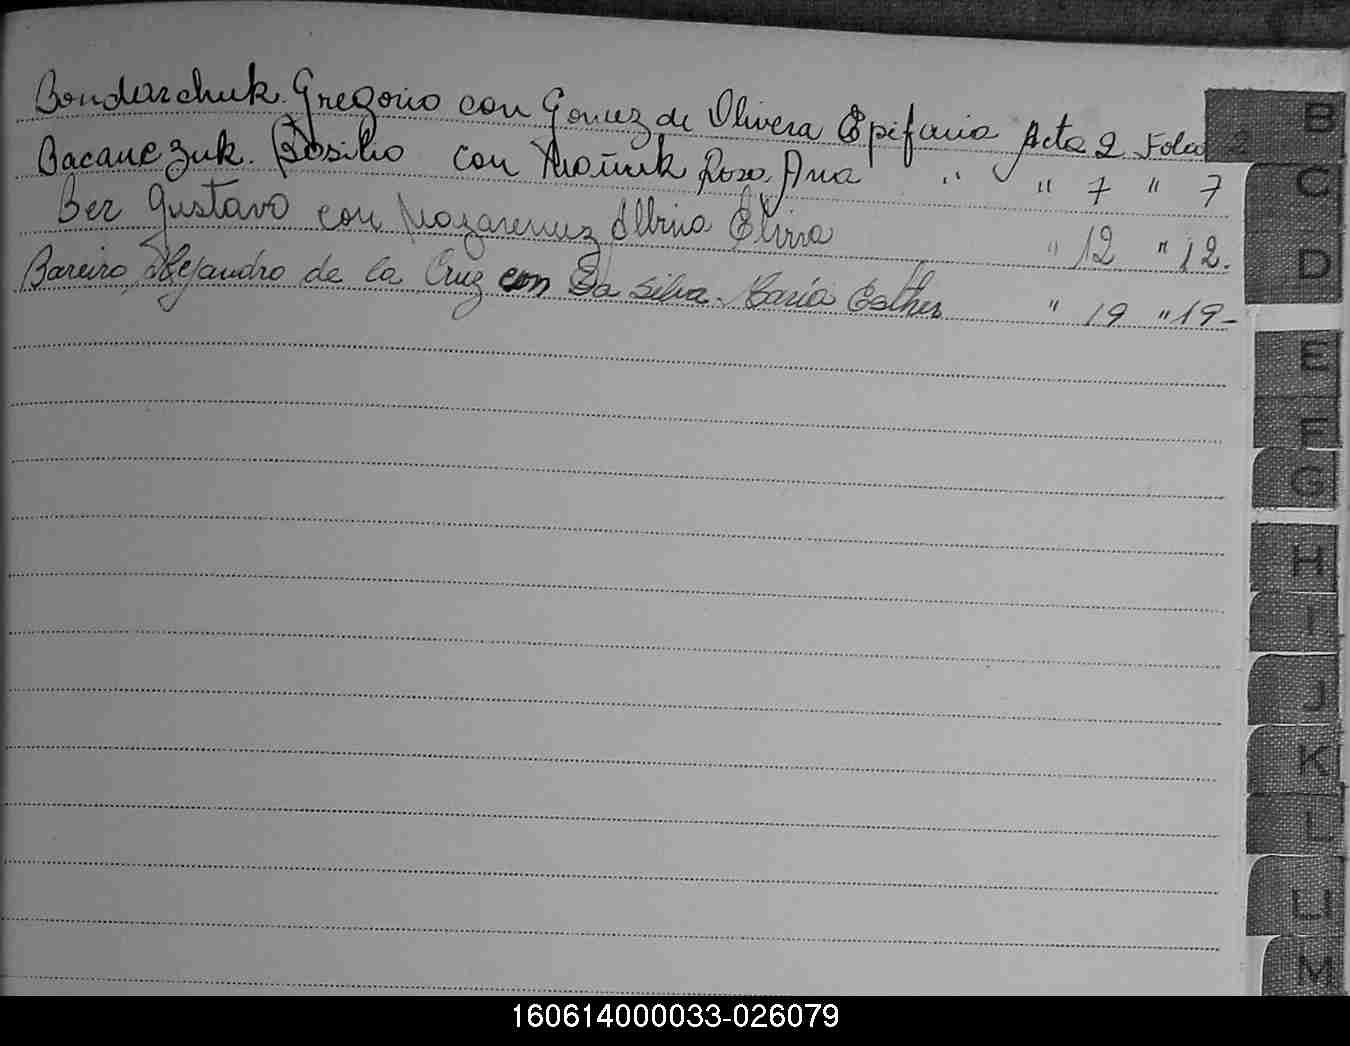 Bondarchuk. Gregorio con Gomez de Olivera Epifania Acta 2 Folio 2
Bacanezuk. Basilio con Rosa Ana " " 7 " 7
Ber Gustavo con Elvira " 12 " 12.
Bareiro, Alejandro de la Cruz con Da Silva. Maria Esther " 19 " 19-
B
C
D
E
F
G
H
I
J
K
L
LL
M
160614000033-026079